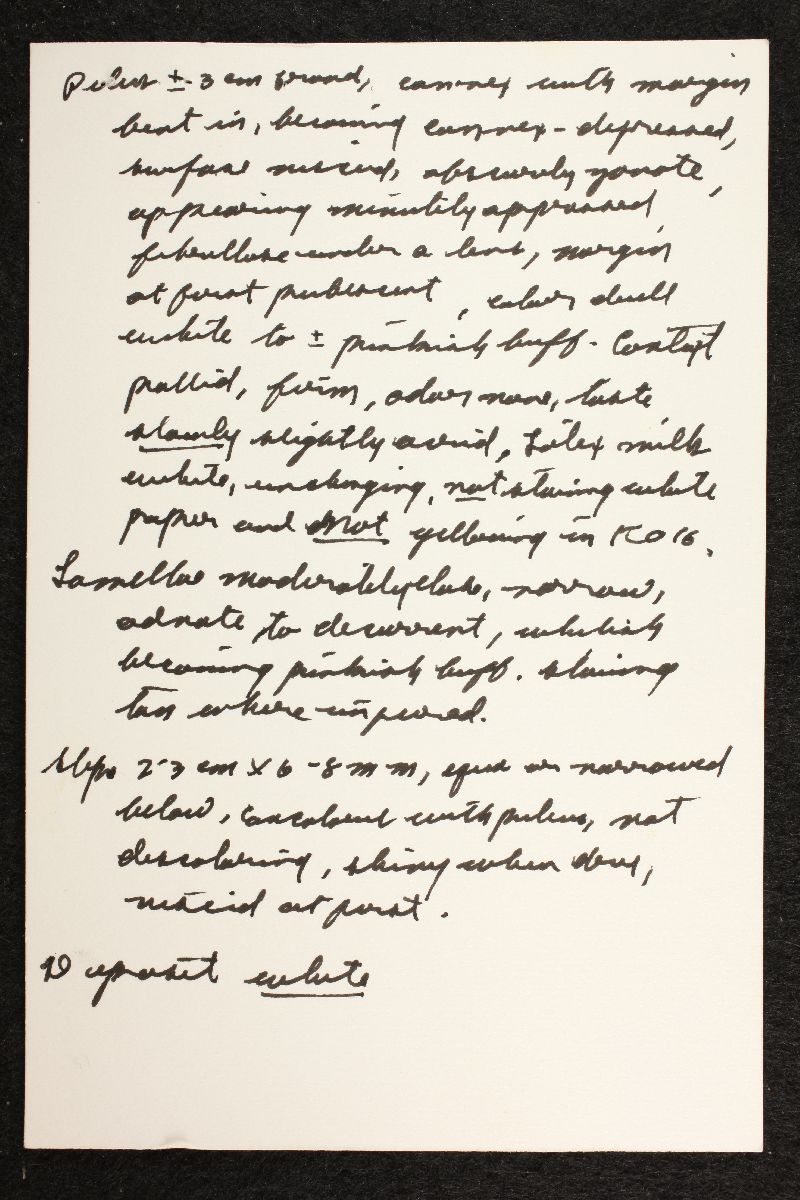 Pileus ± 3 cm broad, convex with margin
bent in, becoming convex-depressed,
surface viscid, obscurely zonate,
appearing minutely appressed
fibrillose under a lens, margin
at first pubescent, color dull
white to ± pinkish buff. Context
pallid, firm, odor none, taste
slowly slightly acrid, Latex milk
white, unchanging, not staining white
paper and not yellowing in KOH.
Lamellae moderately close, narrow,
adnate to decurrent, whitish
becoming pinkish buff. staining
tan where injured.
Stipe 2-3 cm x 6-8 mm, equal or narrowed
below, concolorous with pileus, not
discoloring, shiny when dry,
viscid at first.
Deposit white